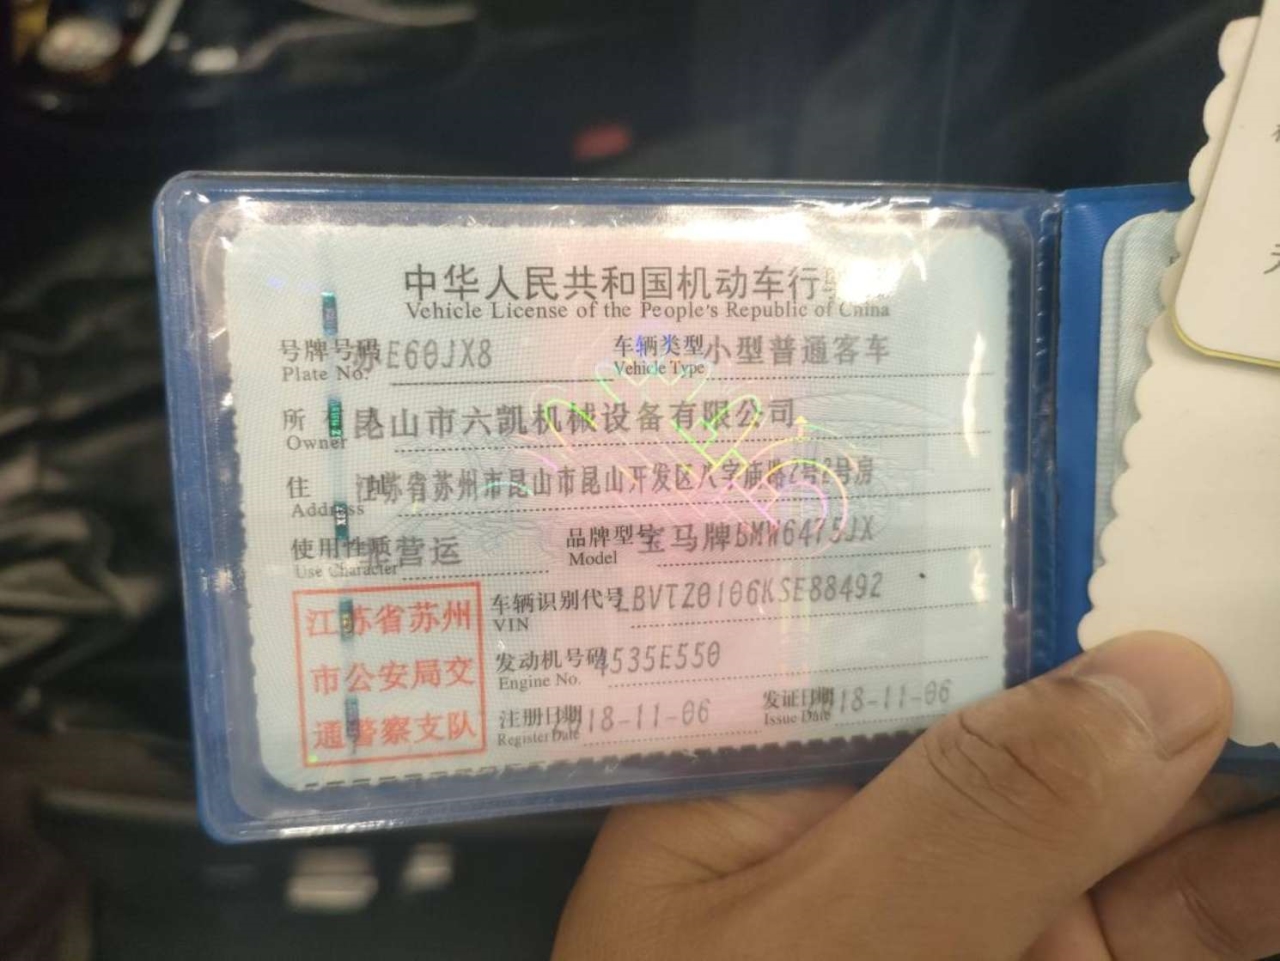 中华人民共和国机动车行驶证
Vehicle License of the People's Republic of China
号牌号码 苏E60JX8 车辆类型 小型普通客车
Plate No. Vehicle Type
所 有 人 昆山市六凯机械设备有限公司
Owner
住 址 江苏省苏州市昆山市昆山开发区八字庙路2号2号房
Address
使用性质 非营运 品牌型号 宝马牌BMW6475JX
Use Character Model
车辆识别代号 LBVTZ0106KSE88492
VIN
发动机号码 4535E550
Engine No.
注册日期 18-11-06 发证日期 18-11-06
Register Date Issue Date
江苏省苏州
市公安局交
通警察支队